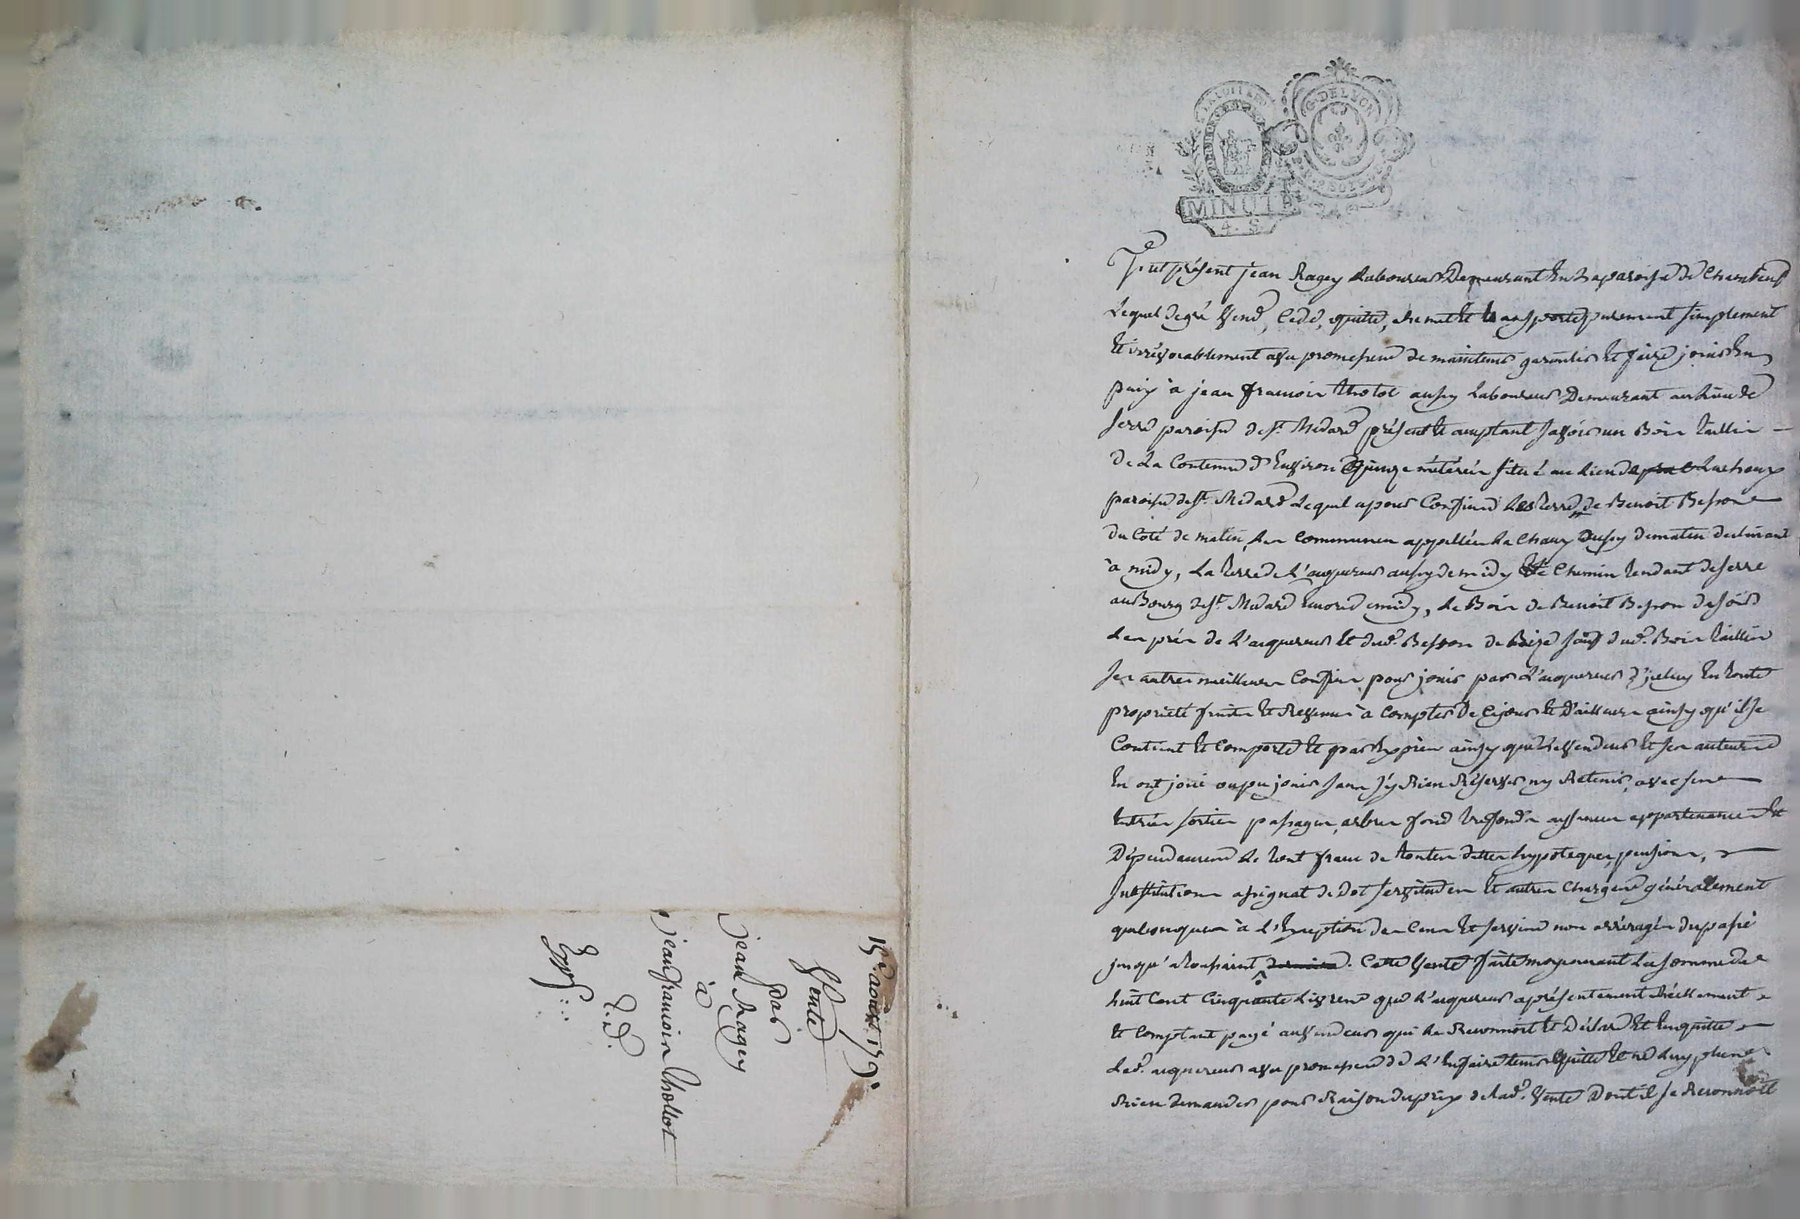 15e. aoust 179
Vente
par
jean Ragey
à
jean francois Thollot
Exp.
R. D.
LA LOI LE ROI
G. DE LYON
MINUTE
4. S.
fut présent jean Ragey Laboureur Demeurant En La paroisse de Chambeuf
Lequel de gré Vend, Cede, quitte, Remet et transporte purement simplement
Et irrévocablement avec promesse de maintenir garantir Et faire jouir En
paix à jean francois Tholot aussy Laboureur Demeurant au Lieu de
serre paroisse de st. Medard présent et acceptant savoir un Bois Taillis
De La Contenue d'Environ quinze méterée situé au Lieu de Lachaux
paroisse de st. Medard Lequel a pour Confins Les terres de Benoit Besson
du Coté de matin, Les Communes appellées La Chaux aussy de matin declinant
à midy, La terre de L'acquereur aussy de midy Le Chemin tendant de serre
au Bourg de st. Medard Encore de midy, Le Bois de Benoit Besson de soir
Les prés de L'acquereur Et dud. Besson de Bize sauf dud. Bois Taillis
ses autres meilleurs Confins pour jouir par L'acquereur d'jceluy En toute
proprieté fruits Et Revenus à Compter De Cejour Et D'ailleurs ainsy qu'il se
Contient Et Comporte Et par Exprès ainsy que Le vendeur Et ses auteurs
En ont joui ou pu jouir sans s'y Rien Réserver ny Retenir, avec ses
Entrées sorties passages, arbres fond tresfonds aisances appartenances Et
Dépendances Le tout franc de toutes dettes hypoteques, pensions,
Substitutions assignat de Dot servitudes Et autres Charges généralement
quelconques à L'Exception des Cens Et servis non arréragés du passé
jusqu'a Cette Vente faite moyennant La somme de
huit Cent Cinquante Livres que L'acquereur a présentement Réellement
Et Comptant payé au vendeur qui Le Reconnoit Et Déclare Et En quitte
Led. acquereur avec promesse de L'En faire tenir quitte Et ne Luy plus
Rien demander pour Raison du prix de Lad. Vente Dont il se Reconnoit